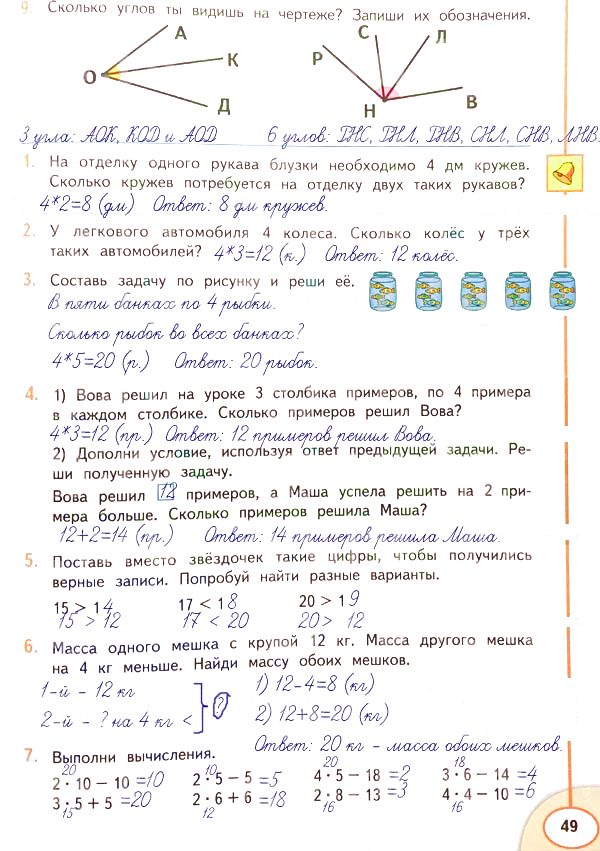 9. Сколько углов ты видишь на чертеже? Запиши их обозначения.
А
К
О
Д
Р
С
Л
Н
В
3 угла: АОК, КОД и АОД 6 углов: РНС, РНЛ, РНВ, СНЛ, СНВ, ЛНВ.
1. На отделку одного рукава блузки необходимо 4 дм кружев.
Сколько кружев потребуется на отделку двух таких рукавов?
4*2=8 (дм) Ответ: 8 дм кружев.
2. У легкового автомобиля 4 колеса. Сколько колёс у трёх
таких автомобилей? 4*3=12 (к.) Ответ: 12 колёс.
3. Составь задачу по рисунку и реши её.
В пяти банках по 4 рыбки.
Сколько рыбок во всех банках?
4*5=20 (р.) Ответ: 20 рыбок.
4. 1) Вова решил на уроке 3 столбика примеров, по 4 примера
в каждом столбике. Сколько примеров решил Вова?
4*3=12 (пр.) Ответ: 12 примеров решил Вова.
2) Дополни условие, используя ответ предыдущей задачи. Ре-
ши полученную задачу.
Вова решил 12 примеров, а Маша успела решить на 2 при-
мера больше. Сколько примеров решила Маша?
12+2=14 (пр.) Ответ: 14 примеров решила Маша.
5. Поставь вместо звёздочек такие цифры, чтобы получились
верные записи. Попробуй найти разные варианты.
15 > 14 17 < 18 20 > 19
15 > 12 17 < 20 20 > 12
6. Масса одного мешка с крупой 12 кг. Масса другого мешка
на 4 кг меньше. Найди массу обоих мешков.
1-й - 12 кг 1) 12-4=8 (кг)
?
2-й - ? на 4 кг < 2) 12+8=20 (кг)
Ответ: 20 кг - масса обоих мешков.
7. Выполни вычисления.
20 10 18
2 · 10 − 10 =10 2 · 5 − 5 =5 4 · 5 − 18 =2 3 · 6 − 14 =4
3 · 5 + 5 =20 2 · 6 + 6 =18 2 · 8 − 13 =3 4 · 4 − 10 =6
15 12 16 16
49